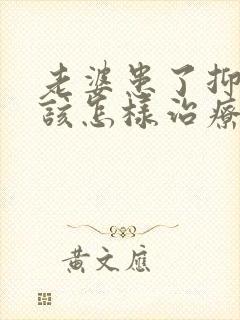 老婆患了抑
該怎樣治療
黃文應